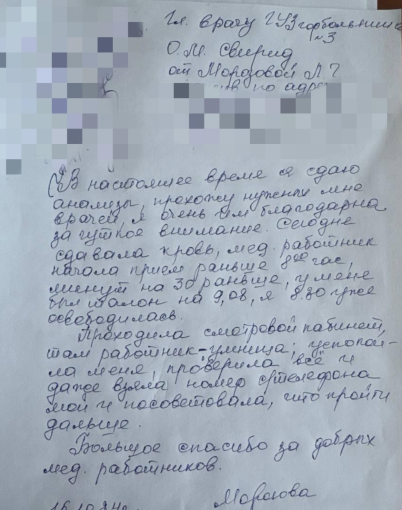 Гл. врачу ГУЗ горбольница
№3
О.М. Свирид
от Мордовой Л
по адре
В настоящее время я сдаю
анализы, прохожу нужных мне
врачей, я очень им благодарна
за чуткое внимание. Сегодня
сдавала кровь, мед. работник
начала прием раньше 8ми час,
минут на 30 раньше, у меня
был талон на 9,08, я 8.30 уже
освободилась.
Проходила смотровой кабинет,
там работник-умница; успокои-
ла меня, проверила всё и
даже взяла номер стелефона
мой и посоветовала, что пройти
дальше.
Большое спасибо за добрых
мед. работников.